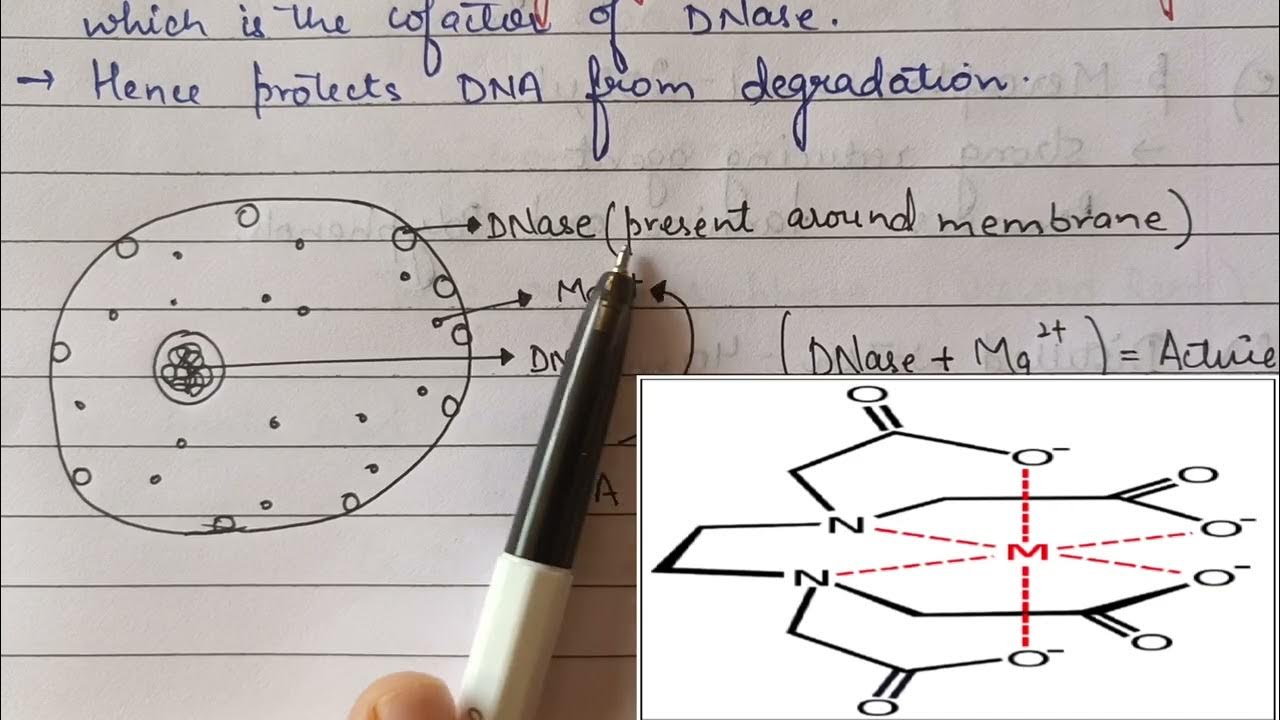 which is the cofactor of DNase.
→ Hence protects DNA from degradation.
DNase (present around membrane)
(DNase + Mg²⁺) = Active
O
O⁻
O
N
O⁻
M
N
O⁻
O
O⁻
O